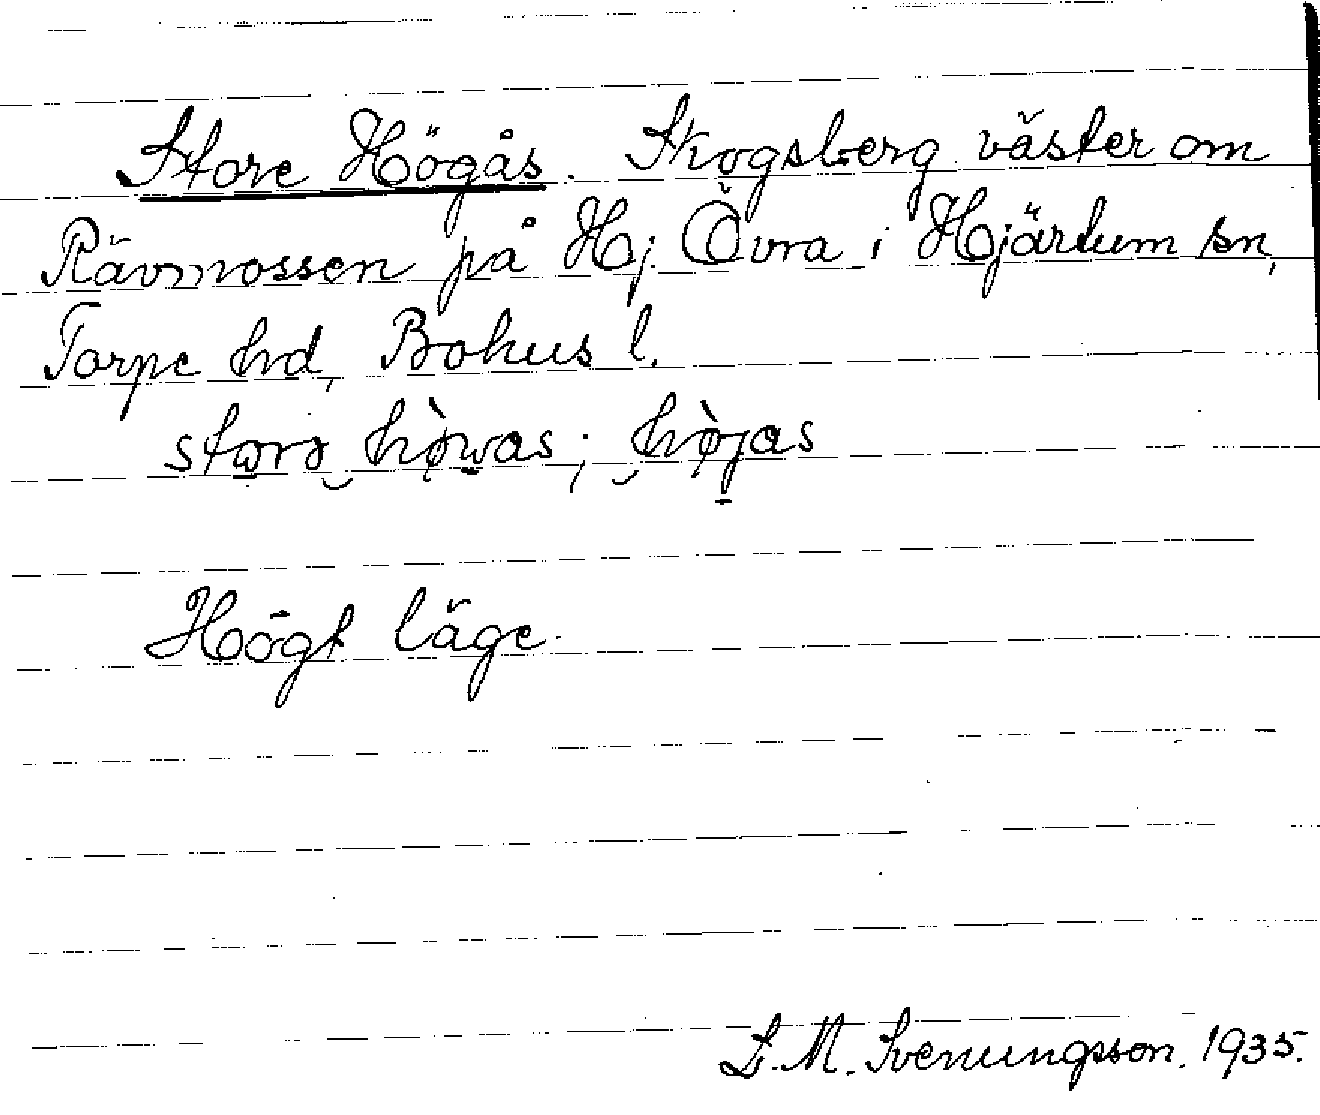 Store Högås. Skogsberg väster om
Rävmossen på Hj. Övra i Hjärtum sn,
Torpe hd, Bohus l.
Högt läge.
S. M. Svenungsson. 1935.